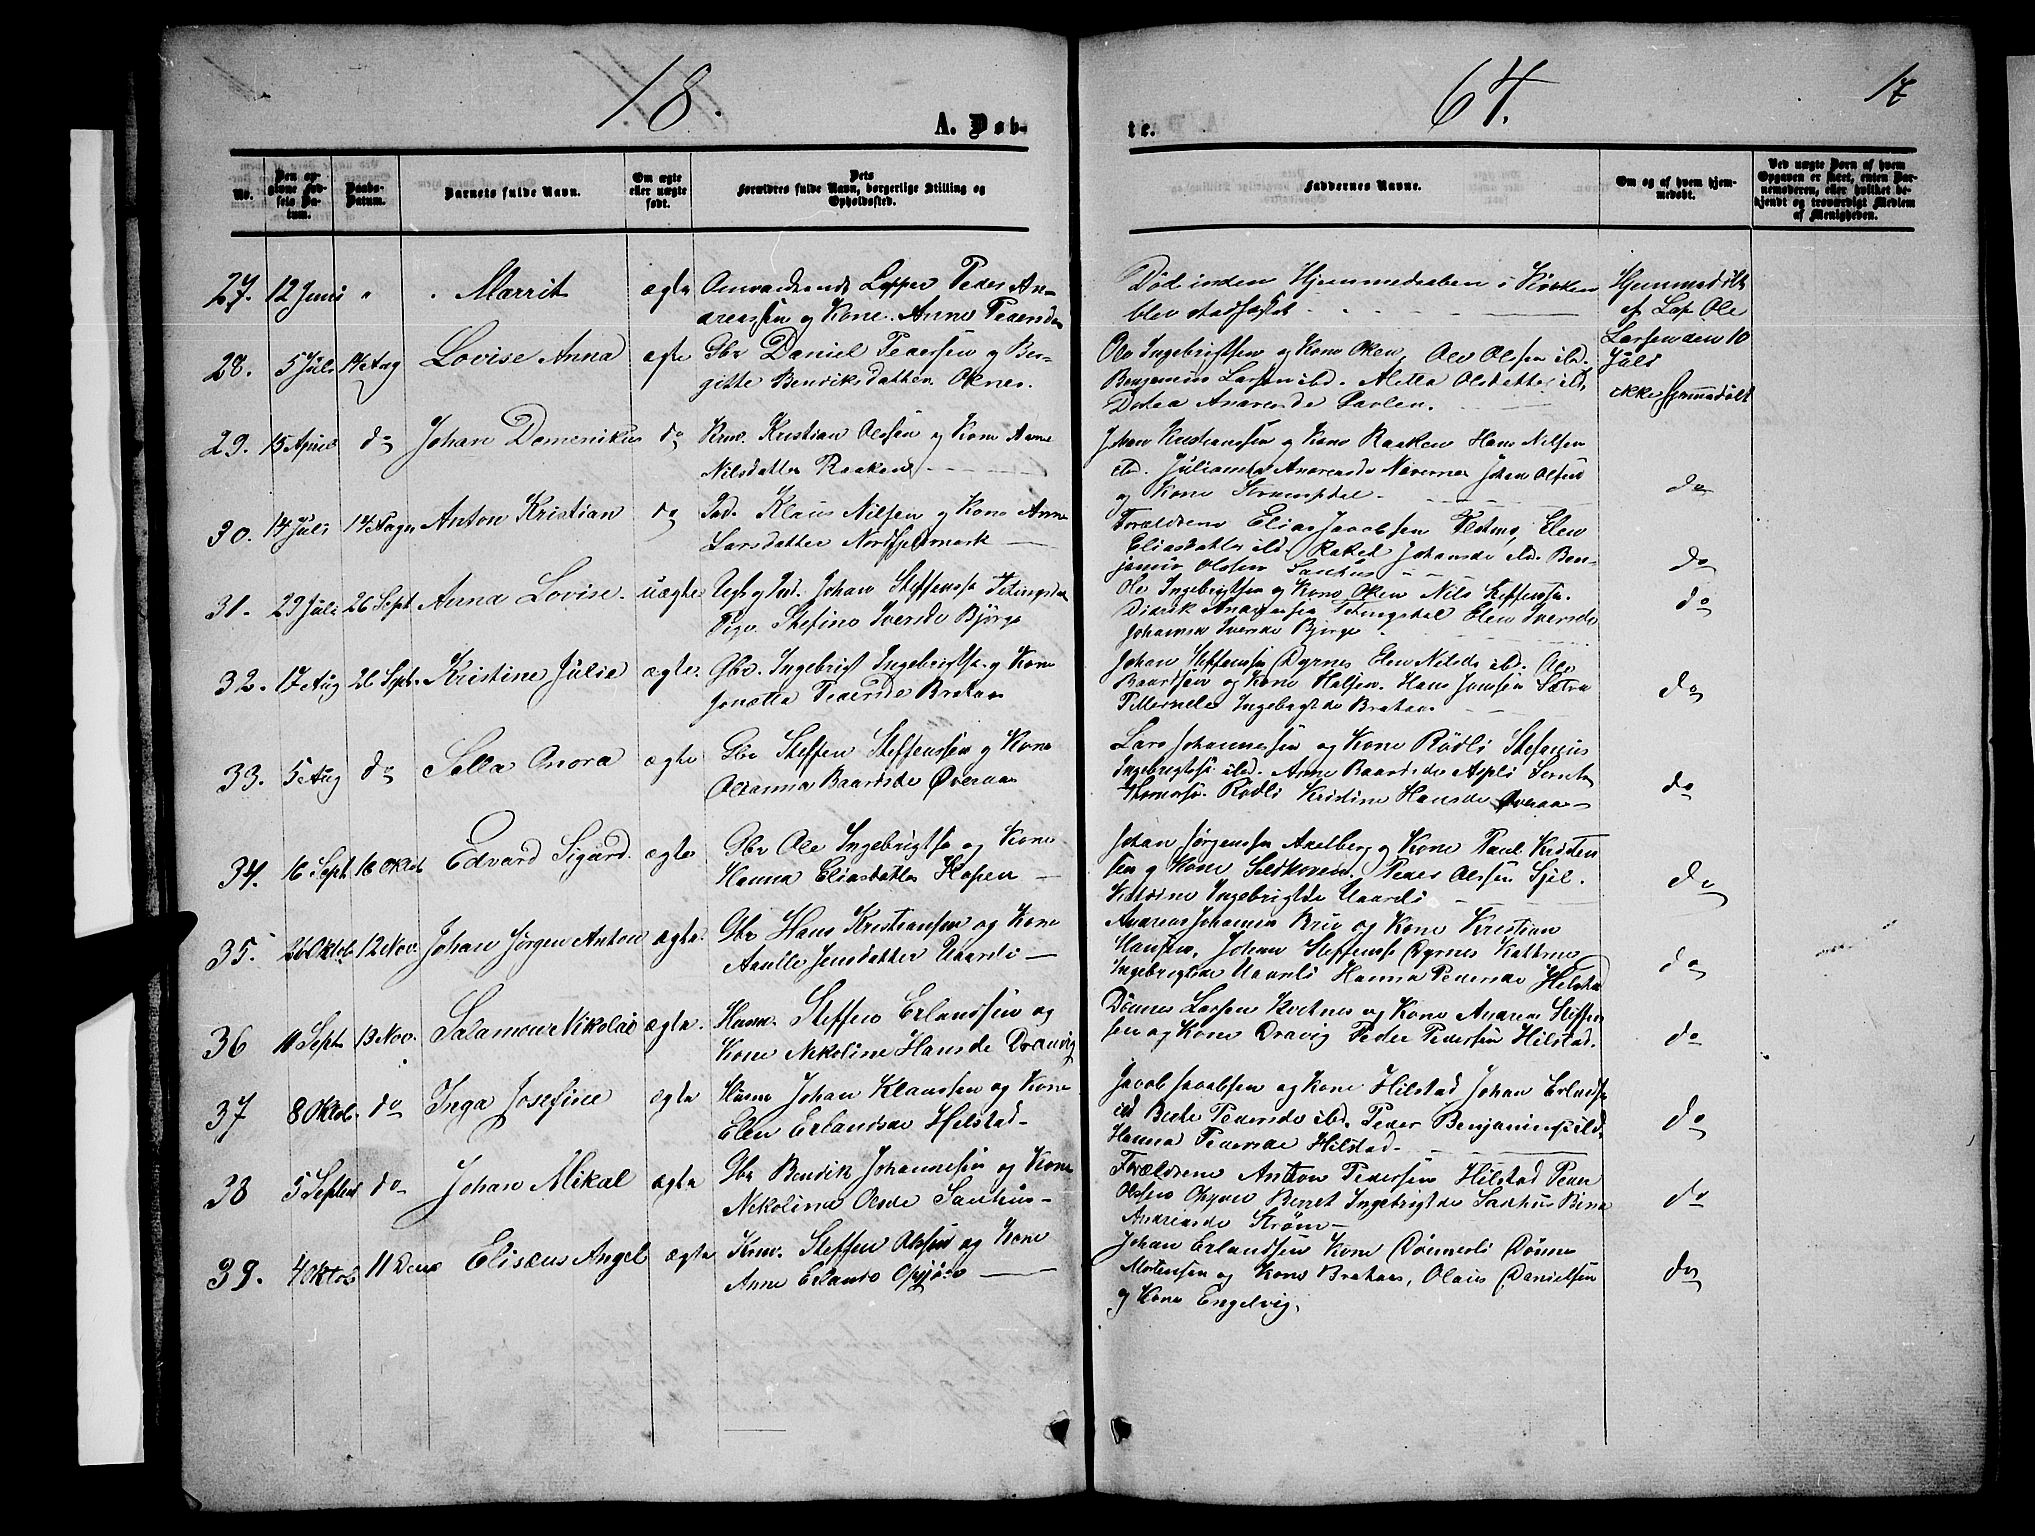 18.
64.
17
A. Døb-
te.
No.
Den opgivne Fødsels Datum.
Daabs-Datum.
Barnets fulde Navn.
Om ægte eller uægte født.
Dets Forældres fulde Navn, borgerlige Stilling og Opholdssted.
Faddernes Navne.
Om og af hvem hjemmedøbt.
Ved uægte Barn af hvem Opgaven er skeet, enten Barnemoderen, eller hvilket bekjendt og troværdigt Medlem af Menigheden.
27. 12 Juni " Marrit ægte Omvankende Lapper Peder An-
dreassen og Kone Anne Pedersda
Død inden Hjemmedaaben i Kirken
blev stadfæstet
Hjemmedøbt
af Lap Ole
Larsen den 10
Juli
28. 5 Juli 14 Aug Lovise Anna ægte Gbr Daniel Pedersen og Ber-
gitte Bendiksdatter Oknes.
Ole Ingebrigtsen og Kone Oken, Ole Olsen ibd.
Benjamin Larsen ibd. Aletta Olsdatter ibd.
ikke hjemmedøbt
29. 15 April do Johan Domenikus do Kristian Olsen og Kone Anne
Nilsdatter Raaken
Johan Kristiansen og Kone Raaken Hans Nilsen
ibd. Julianna Andreasde Johan Olsen
og Kone
do
30. 14 Juli 14 Aug Anton Kristian do Ind. Klaus Nilsen og Kone Anne
Larsdatter
Forældrene Elias Jacobsen Elen
Eliasdatter ibd. Rakel Johansde ibd. Ben-
jamin Olsen Saxhus
do
31. 29 Juli 26 Sept Anna Lovise. uægte Ungk og Ind. Johan Steffenss
Pige Stefine Iversde Bjørge
Ole Ingebrigtsen og Kone Oken Nils Steffenss.
Didrik Andersen Elen Iversde
Johanna Iversde Bjørge
do
32. 17 Aug 26 Sept. Kristine Julia ægte. Gbr. Ingebrigt Ingebrigtss. og Kone
Jonetta Pedersde Brataas
Johan Steffensen Dyrnes Elen Nilsde ibd. Ole
Baardsen og Kone Halsen. Hans Jensen Sætra
Ingebrigtde Brataas
do
33. 5 Aug do Sella Onora ægte Gbr Steffen Steffenssen og Kone
Olianna Baardsde Øveraas
Lars Johannesen og Kone Rødli Stefanus
Ingebrigtss ibd. Anne Baardsde Aspli
Rødli Kristine Hansde Øveraas
do
34. 16 Sept 16 Oktob Edvard Sigurd. ægte Gbr Ole Ingebrigtss og Kone
Hanna Eliasdatter Hopen
Johan Jørgensen Axelberg og Kone Paul Kristen
sen og Kone Peder Olsen
Katrine Ingebrigtde Uaardi
do
35. 26 Oktob. 12 Nov. Johan Jørgen Anton ægte. Gbr Hans Kristiansen og Kone
Jensdatter Uaardi
Andreas Johansen og Kone Kristian
Hansen, Johan Steffenss Dyrnes Katrine
Ingebrigtde Uaardi Hanna Pedersde Hilstad
do
36 11 Sept 13 Nov. Salamon Nikolai ægte. Husm. Steffen Erlandsen og
Kone Nekoline Hansde Dravig
Dønnes Larsen og Kone Andrea Steffen
sen og Kone Dravig Peder Pedersen Hilstad.
do
37 8 Oktob. do Inga Josefine ægte Husm Johan Klaussen og Kone
Elen Erlandsde Hilstad
Jacob Jacobsen og Kone Hilstad Johan Erlands
ibd Berte Pedersde ibd. Peder Benjamins ibd.
Hanna Pedersde Hilstad
do
38 5 Septem do Johan Mikal ægte Gbr Bendik Johannesen og Kone
Nekoline Olsde Saxhus
Forældrene Anton Pedersen Hilstad Peder
Olsen Berret Ingebrigtde Saxhus
Andreasde Strøm
do
39. 4 Oktob 11 Decm Elisæus Angel ægte Steffen Olsen og Kone
Anne Erlandsd
Johan Erlandsen Kone Dønnesli Dønne
Mortensen og Kone Brataas, Olaus Danielsen
og Kone Engelvig.
do